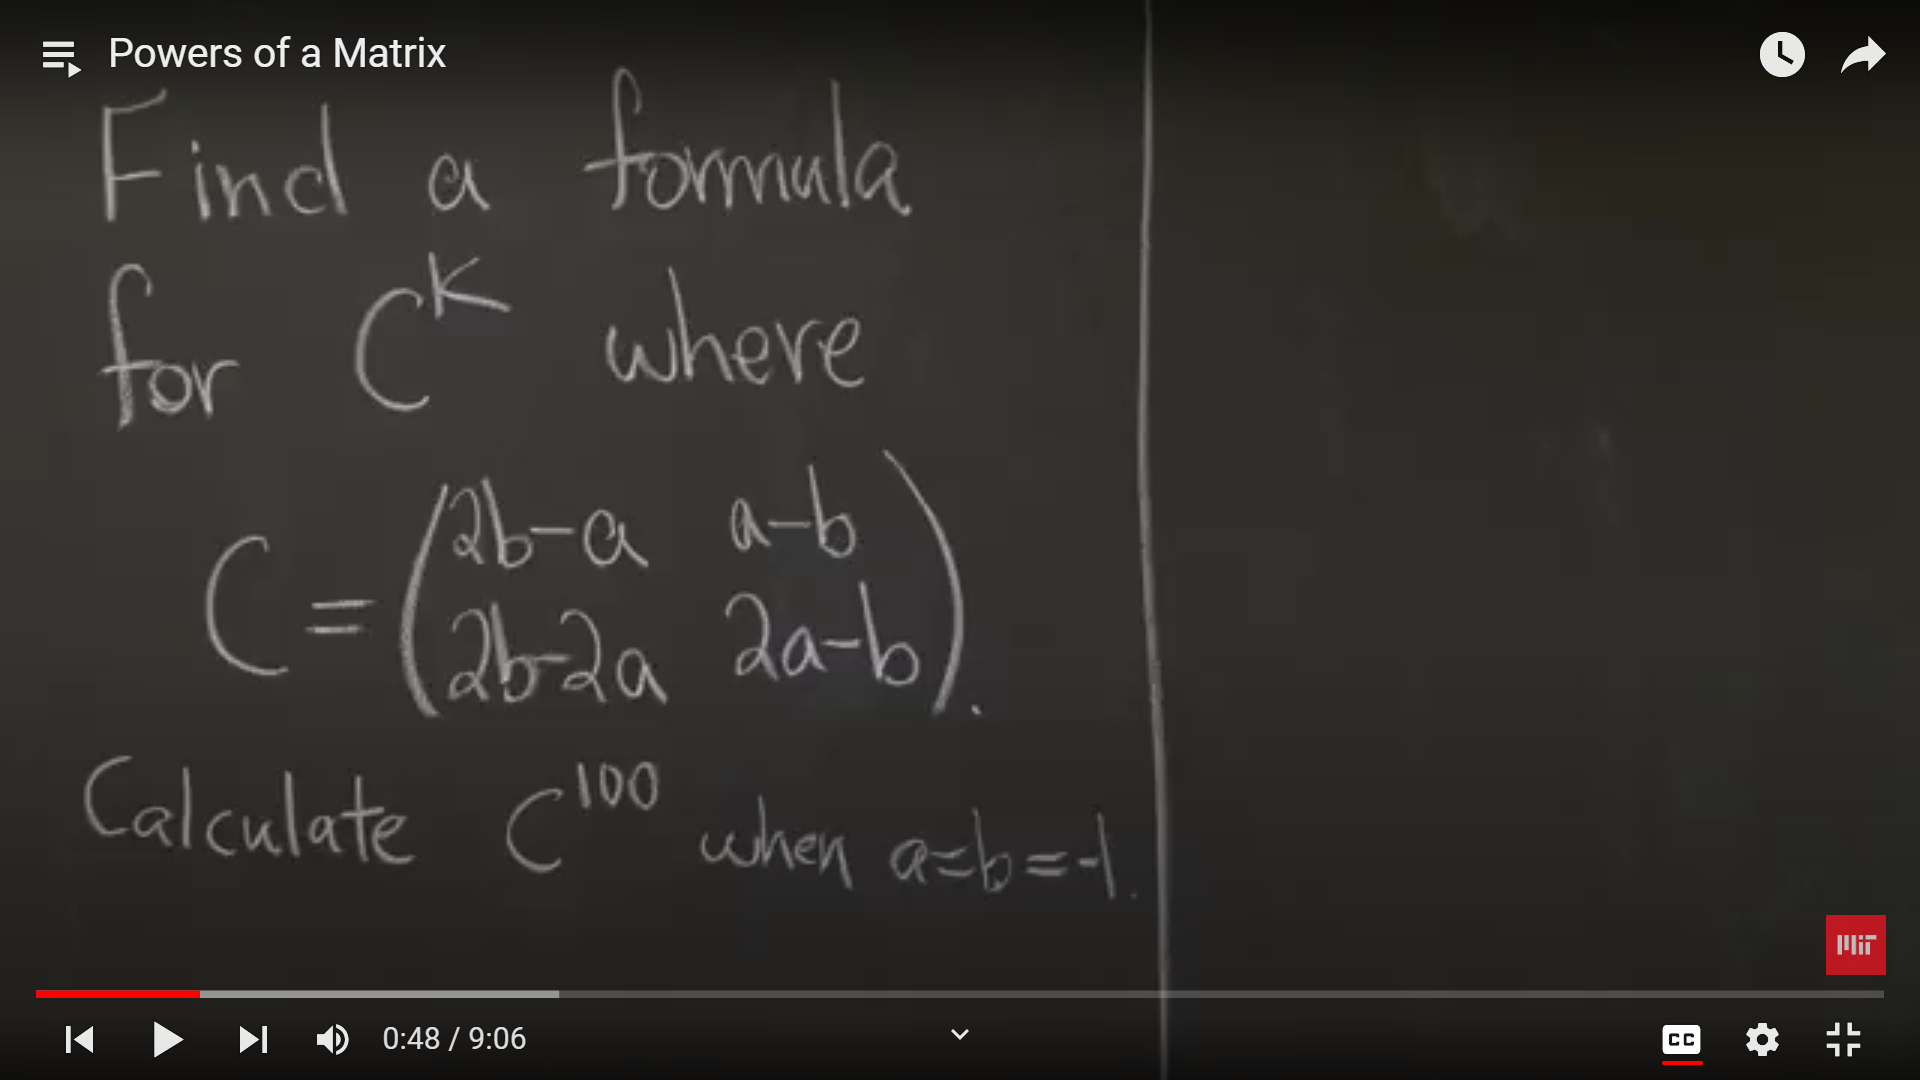 Powers of a Matrix
Find a formula
for C^K where
C = (2b-a a-b
2b-2a 2a-b).
Calculate C^100 when a=b=-1.
MIT
0:48 / 9:06
CC